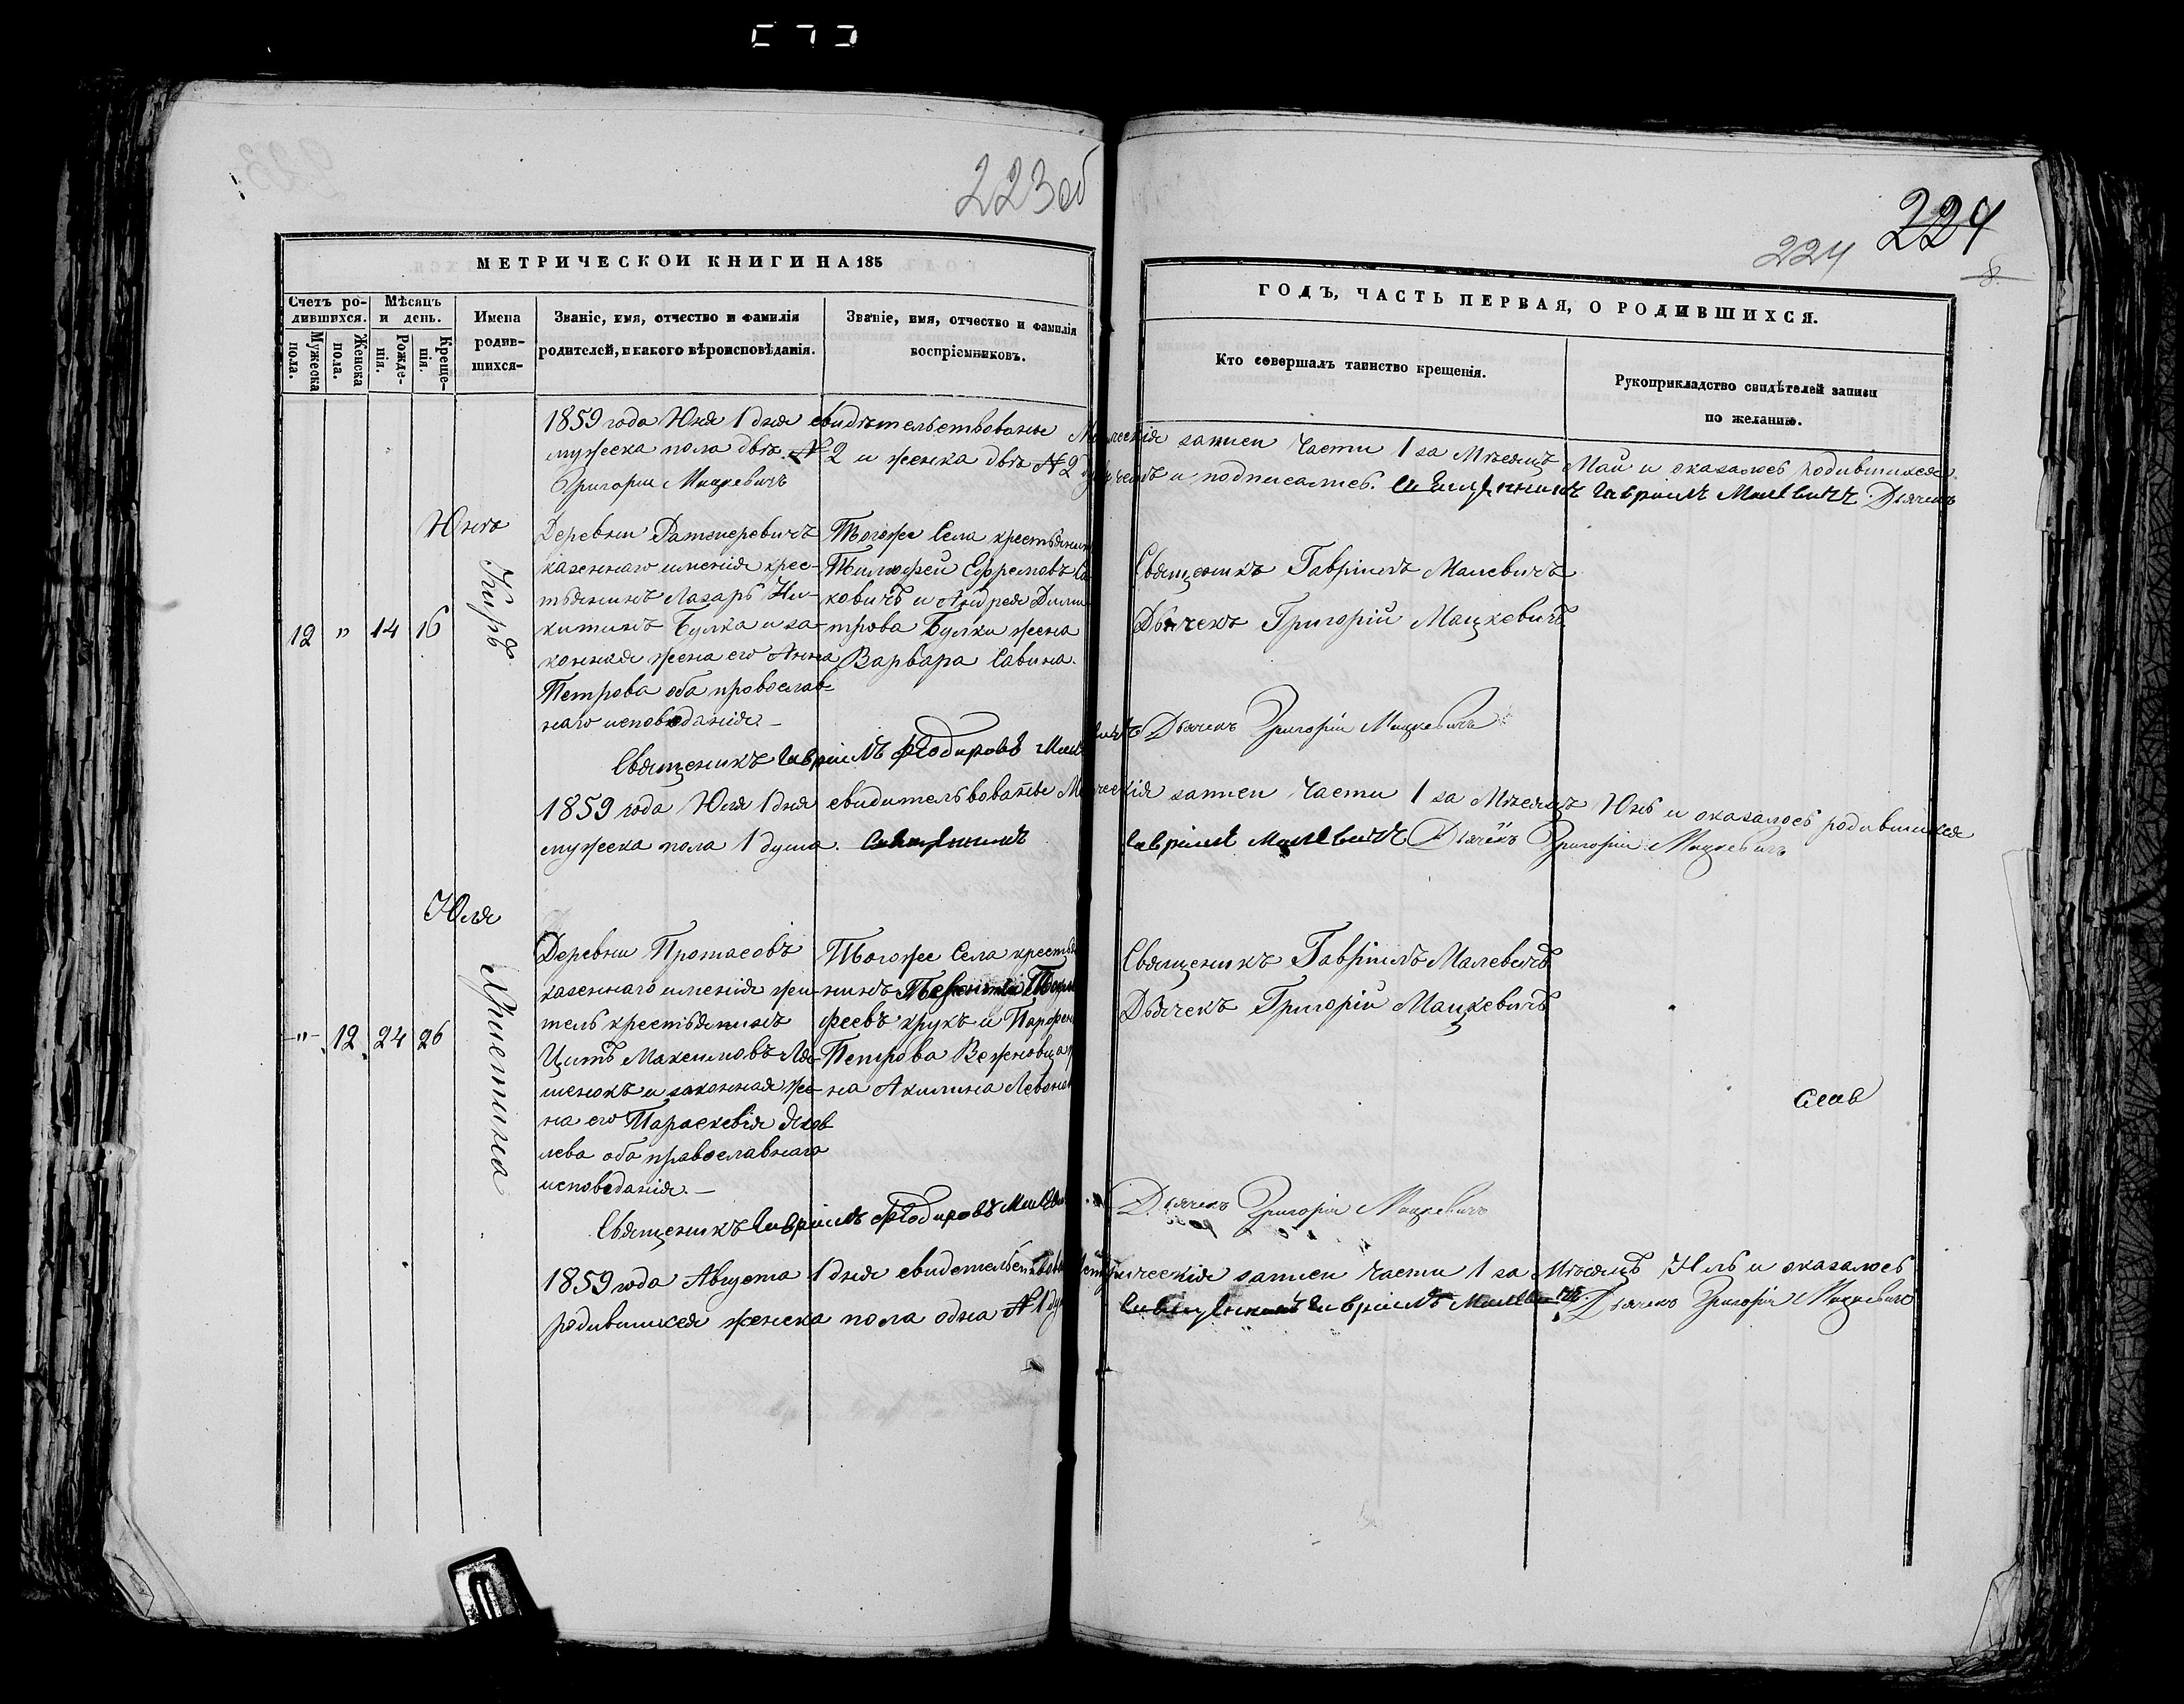 223 об
224
224
8.
МЕТРИЧЕСКОЙ КНИГИ НА 185
ГОДЪ, ЧАСТЬ ПЕРВАЯ, О РОДИВШИХСЯ.
Счетъ ро-
дившихся.
Мѣсяцъ
и день.
Мужеска
пола.
Женска
пола.
Рожде-
нія.
Креще-
нія.
Имена
родив-
шихся-
Званіе, имя, отчество и фамилія
родителей, и какого вѣроисповѣданія.
Званіе, имя, отчество и фамилія
воспріемниковъ.
Кто совершалъ таинство крещенія.
Рукоприкладство свидѣтелей записи
по желанію.
1859 года Юня 1 дня свидѣтельствованы записи части 1 за Мѣсяцъ Май и оказалось родившихся
мужеска пола двѣ № 2 и женска двѣ № 2 и подписались. Священникъ Гавріилъ Малевичъ Дьячекъ
Григорій Мацкевичъ
Юня
12 " 14 16
Киръ
Деревни казеннаго имѣнія крес-
тьянинъ Лазарь Ни-
китинъ Булка и за-
конная жена его Анна
Петрова оба провослав-
наго исповѣданія. —
Тогоже Села крестьянинъ
Тимофей Ефремовъ
ковичъ и Андрея Дими-
трова Булки жена
Варвара Савина.
Священикъ Гавріилъ Малевичъ
Дьячекъ Григорій Мацкевичъ
Священикъ Гавріилъ Малевичъ Дьячекъ Григорій Мацкевичъ
1859 года Юля 1 дня свидительвованы записи Части 1 за Мѣсяцъ Юнь и оказалось родившихся
мужеска пола 1 душа. Священникъ Гавріилъ Малевичъ Дьячекъ Григорій Мацкевичъ
Юля
-"- 12 24 26
Христина
Деревни Протасовъ
казеннаго имѣнія жи-
тель крестьянинъ
Максимовъ
и законная же-
на его Параскевія Яков
лева оба православнаго
исповеданія. —
Тогоже Села крестья
нинъ
феевъ крукъ и
Петрова
на Акилина
Священикъ Гавріилъ Малевичъ
Дьячекъ Григорій Мацкевичъ
Священикъ Гавріилъ Дьячекъ Григорій Мацкевичъ
1859 года Августа 1 дня записи части 1 за Мѣсяцъ Юль и оказалось
родившихся женска пола одна № 1 Священникъ Гавріилъ Малевичъ Дьячекъ Григорій Мацкевичъ